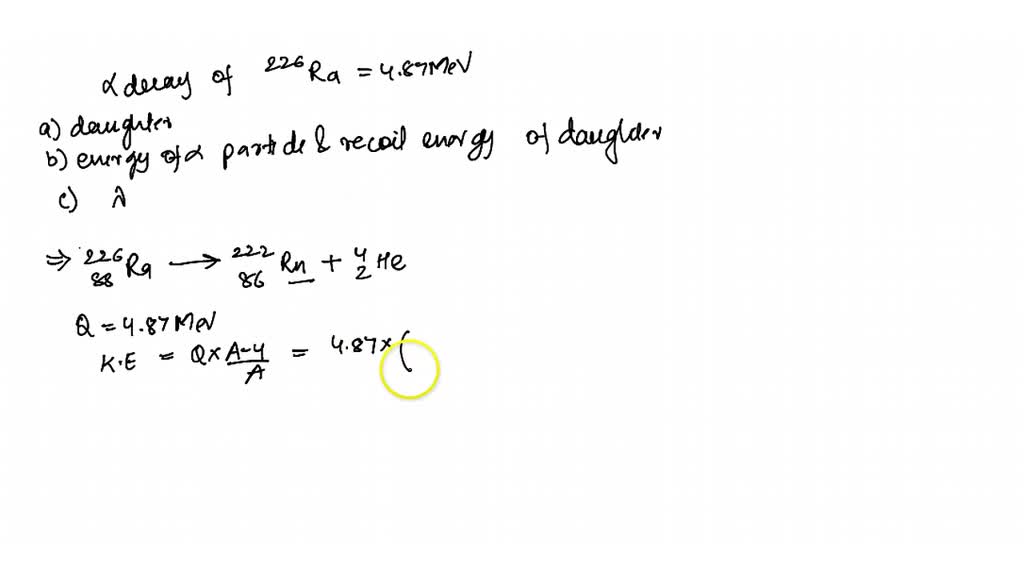 α decay of ²²⁶Ra = 4.87 MeV
a) daughter
b) energy of α particle & recoil energy of daughter
c) λ
⇒ ²²⁶₈₈Ra ⟶ ²²²₈₆Rn + ⁴₂He
Q = 4.87 MeV
K.E = Q × (A-4)/A = 4.87 × (